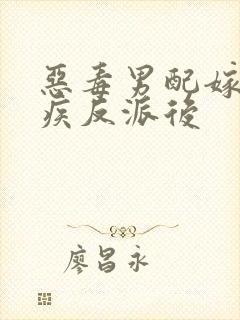 惡毒男配嫁
疾反派後
廖昌永